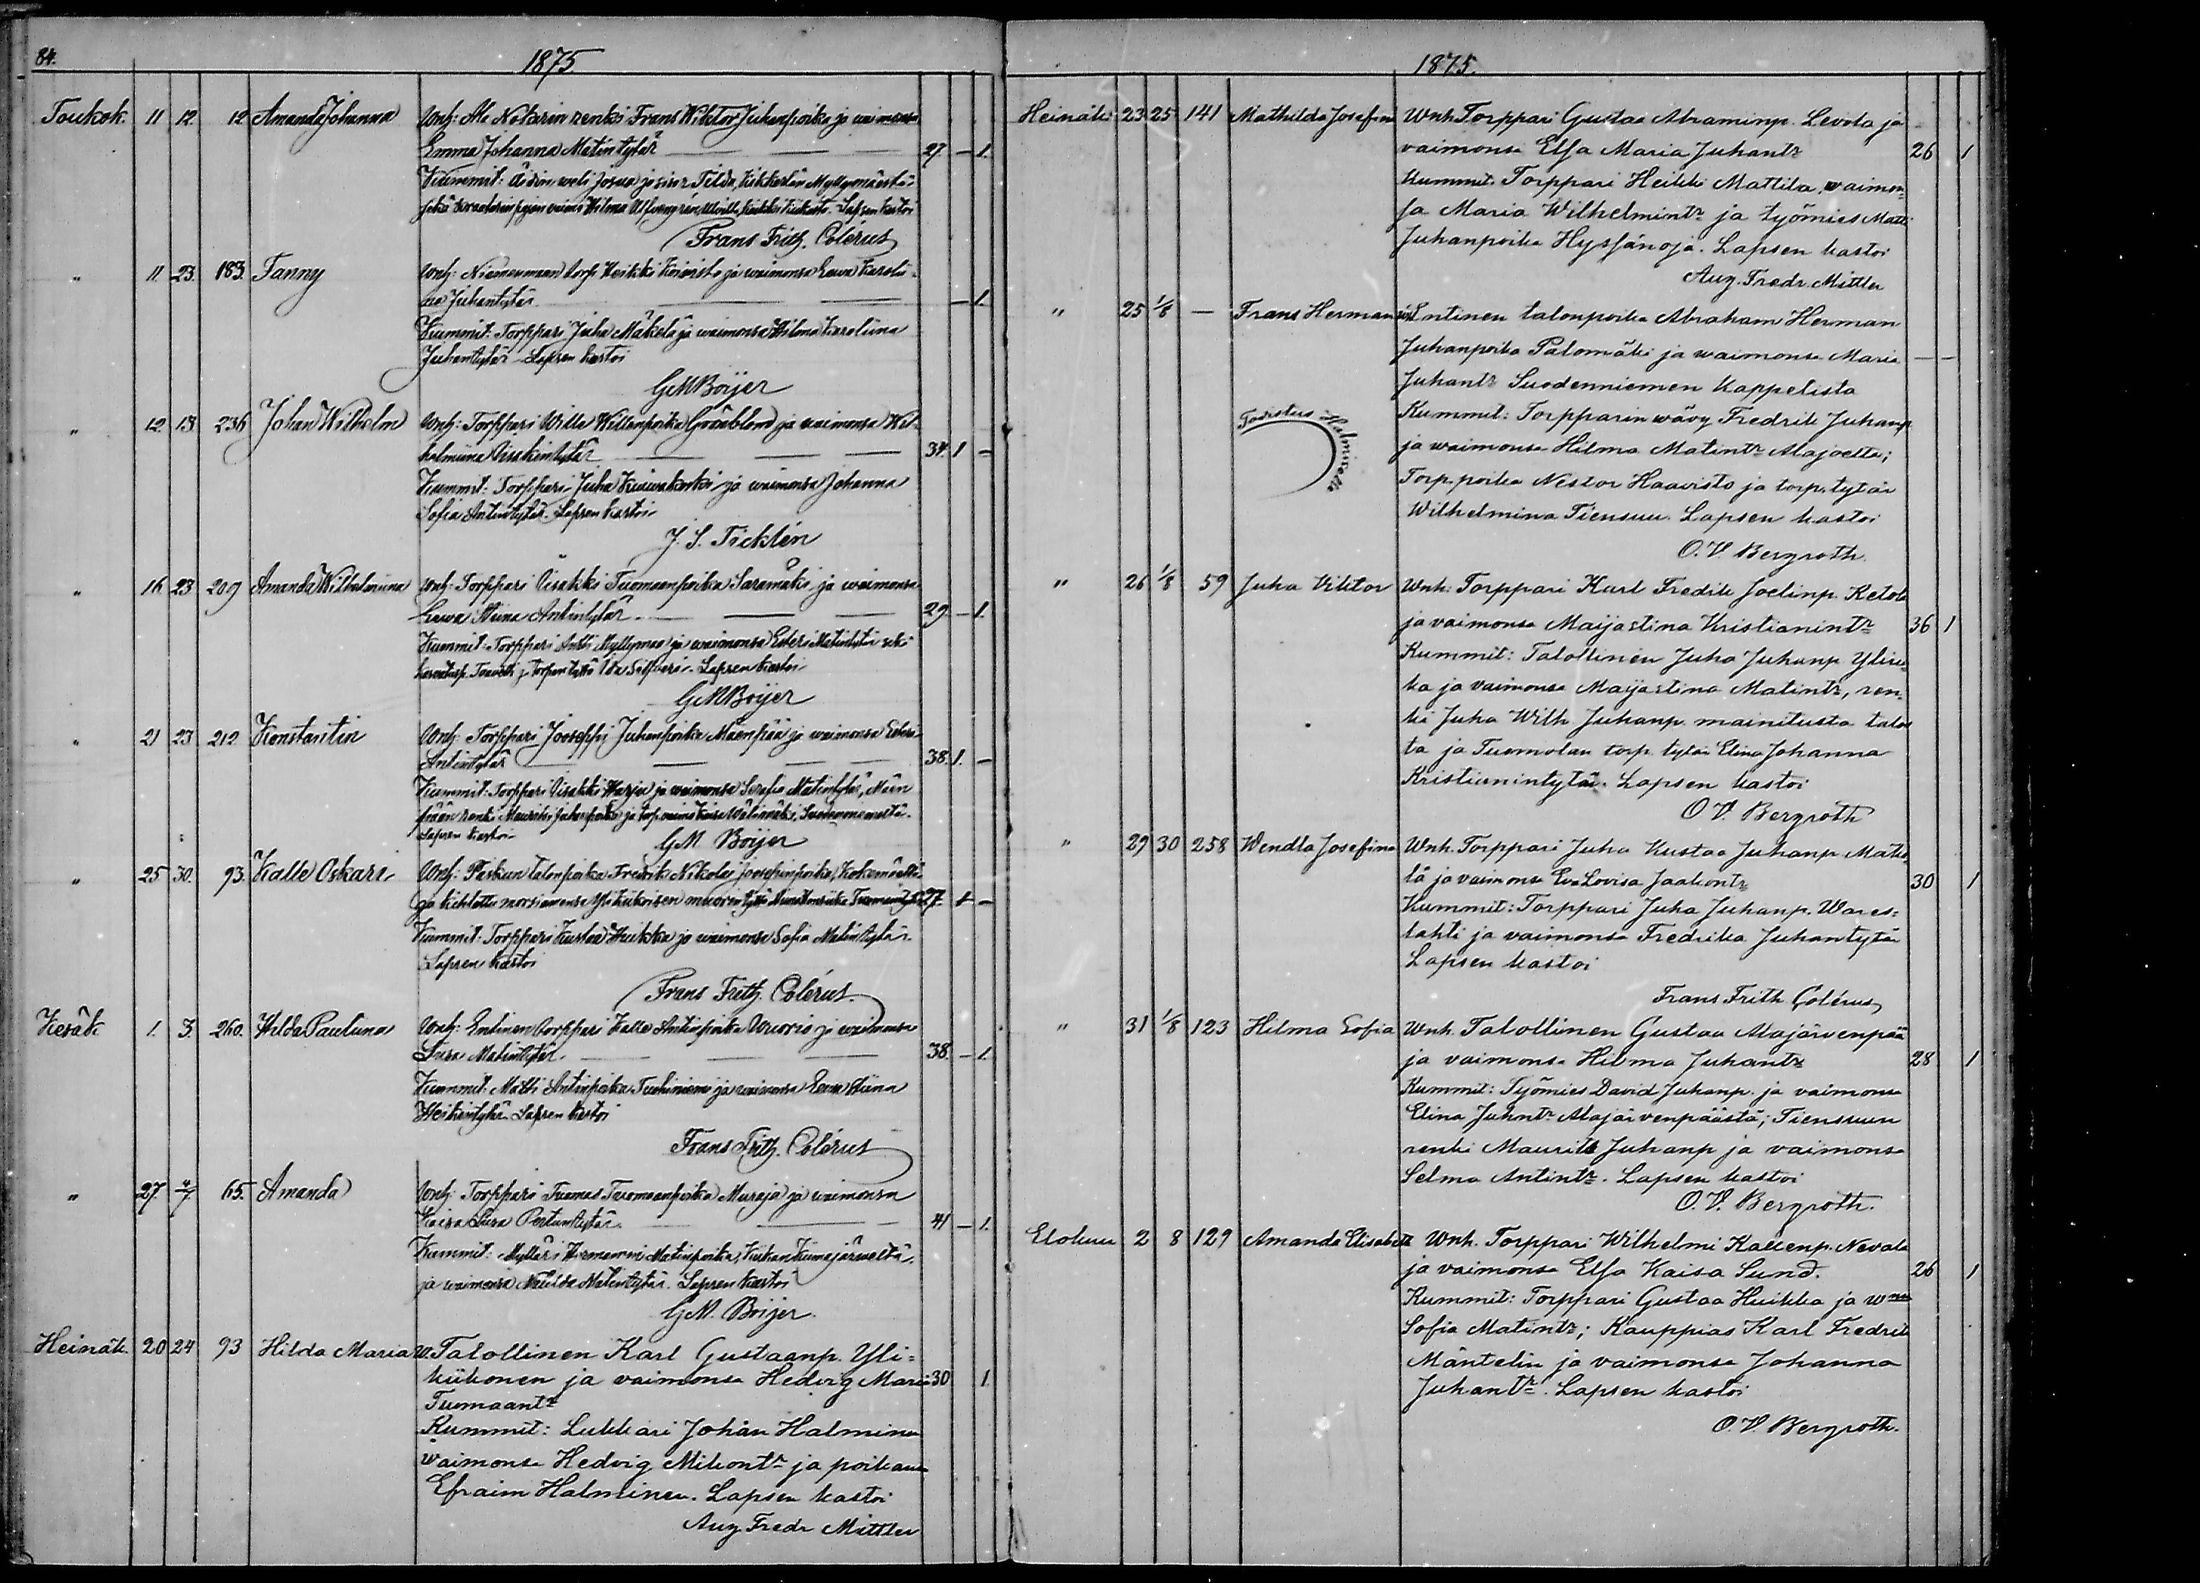 84.
1875
Toukok. 11 12. 12 Amanda Johanna Wnh: Ala Notarin renki Frans Wiktor Juhanpoika ja waimonsa
Emma Johanna Matintytär 27. – 1.
Kummit: äidin weli Josua ja sisar Tilda, Kikkerlän Myllymäestä
waimo Wilma Lapsen kastoi
Frans Frith. Colérus
" 11. 23. 183. Fanny Wnh: Niemenmaan torp. Heikki Koivisto ja waimonsa Eewa Karolii-
na Juhantytär – 1.
Kummit: Torppari Juha Mäkelä ja waimonsa Wilma Karoliina
Juhantytär. Lapsen kastoi
GMBoijer
" 12. 13. 236 Johan Wilhelm Wnh: Torppari Wille Willenpoika Grönblom ja waimonsa Wil-
helmiina Iisakintytär 34. 1 –
Kummit: Torppari Juha ja waimonsa Johanna
Sofia Antintytär. Lapsen kastoi
J. S. Ticklén
" 16 23 209 Amanda Wilhelmiina Wnh: Torppari Iisakki Tuomaanpoika Saramäki ja waimonsa
Eewa Stiina Antintytär 29 – 1.
Kummit: Torppari Antti Myllymaa ja waimonsa Ester Matintytär sekä
Lapsen kastoi
GMBoijer
" 21 23 212 Konstantin Wnh: Torppari Jooseppi Juhanpoika Mäenpää ja waimonsa
Antintytär 38. 1. –
Kummit: Torppari Iisakki Harju ja waimonsa Serafia Matintytär, Mäen
pään renki Mauritz Juhanpoika ja torp. waimo Suodenniemeltä.
Lapsen kastoi GM. Boijer
" 25 30. 93. Kalle Oskari Wnh: Paskun talonpoika Fredrik Nikolai Joosepinpoika, Kokemäeltä
ja kihlattu morsiamensa Ylikiikoisen 27. 1 –
Kummit: Torppari Kustaa Huikka ja waimonsa Sofia Matintytär.
Lapsen kastoi
Frans Frith. Colérus.
Kesäk. 1. 3. 260. Hilda Pauliina Wnh: Entinen torppari Kalle Antinpoika Wuorio ja waimonsa
Liisa Matintytär. 38. – 1.
Kummit: Matti Antinpoika Tuohiniemi ja waimonsa Eewa Stiina
Heikintytär. Lapsen kastoi
Frans Frith. Colérus
" 27. 4/7 65. Amanda Wnh: Torppari Tuomas Tuomaanpoika Muraja ja waimonsa
Kaisa Liisa Pertuntytär. 41 – 1.
Kummit: Mylläri Hermanni Matinpoika, Kiikan Kiimajärveltä,
ja waimonsa Matilda Matintytär. Lapsen kastoi
GM. Boijer.
Heinäk. 20 24 93 Hilda Maria W. Talollinen Karl Gustaanp. Yli=
kiikonen ja vaimonsa Hedvig Maria 30 1.
Tuomaantr
Kummit: Lukkari Johan Halminen
waimonsa Hedvig Mikontr ja poikansa
Efraim Halminen. Lapsen kastoi
Aug. Fredr Mittler
1875.
Heinäk 23 25 141 Mathilda Josefina Wnh. Torppari Gustaa Abraminp. Levola ja
vaimonsa Elsa Maria Juhantr 26 1
Kummit. Torppari Heikki Mattila, waimon-
sa Maria Wilhelmintr ja työmies Matti
Juhanpoika Hyssänoja. Lapsen kastoi
Aug. Fredr. Mittler
" 25 1/8 – Frans Herman Entinen talonpoika Abraham Herman
Juhanpoika Palomäki ja waimonsa Maria – –
Juhantr Suodenniemen Kappelista
Todistus Halmiselle
Kummit: Torpparin wävy Fredrik Juhanp
ja waimonsa Hilma Matintr Alajoelta;
Torp. poika Nestor Haavisto ja torp. tytär
Wilhelmina Tiensuu. Lapsen kastoi
O. V. Bergroth.
" 26 1/8 59 Juha Viktor Wnh: Torppari Karl Fredrik Joelinp. Ketola
ja vaimonsa Maijastina Kristianintr 36 1
Kummit: Talollinen Juha Juhanp Yliru-
ka ja vaimonsa Maijastina Matintr, ren-
ki Juha Wilh. Juhanp. mainitusta talos
ta ja Tuomolan torp. tytär Elina Johanna
Kristianintytär. Lapsen kastoi
O. V. Bergroth
" 29 30 258 Wendla Josefina Wnh. Torppari Juha Kustaa Juhanp Mäke
lä ja vaimonsa Eva Lovisa Jaakontr 30 1
Kummit: Torppari Juha Juhanp. Wares=
lahti ja vaimonsa Fredrika Juhantytär
Lapsen kastoi
Frans Frith Colérus
" 31 1/8 123 Hilma Sofia Wnh. Talollinen Gustaa Alajärvenpää
ja vaimonsa Hilma Juhantr 28 1
Kummit: Työmies David Juhanp. ja vaimonsa
Elina Juhntr Alajärvenpäästä; Tiensuun
renki Mauritz Juhanp ja vaimonsa
Selma Antintr. Lapsen kastoi
O. V. Bergroth.
Elokuu 2 8 129 Amanda Elisabeth Wnh. Torppari Wilhelmi Kallenp. Nevala
ja vaimonsa Elsa Kaisa Sund. 26 1
Kummit: Torppari Gustaa Huikka ja wmsa
Sofia Matintr; Kauppias Karl Fredrik
Mäntelin ja vaimonsa Johanna
Juhantr. Lapsen kastoi
O. V. Bergroth.